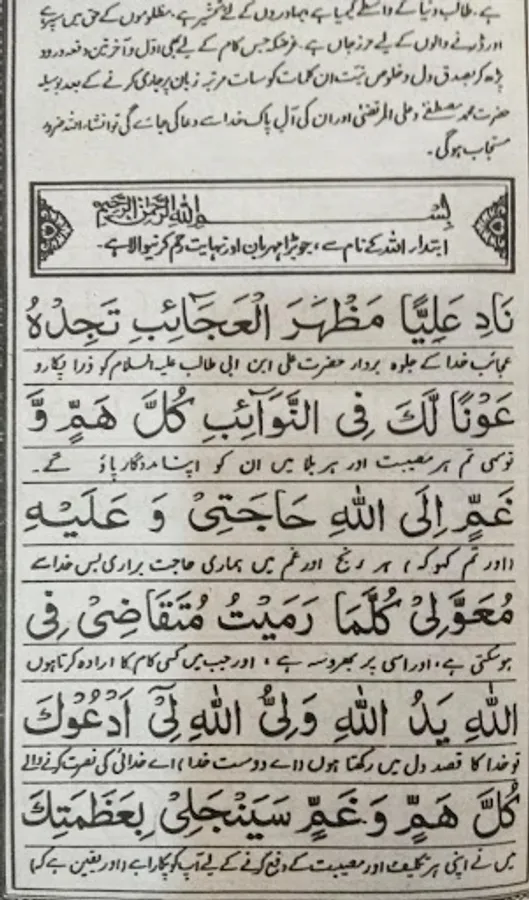 ہے۔ طالب دنیا کے واسطے کیمیا ہے، بہادروں کے لئے شمشیر ہے۔ مظلوموں کے حق میں سپر ہے
اور ڈرنے والوں کے لیے حرزِ جاں ہے۔ غرضکہ جس کام کے لیے بھی اوّل و آخر تین دفعہ درود
پڑھ کر بصدق دل و خلوصِ نیّت ان کلمات کو سات مرتبہ زبان پر جاری کرنے کے بعد بوسیلہ
حضرت محمد مصطفےٰ و علی المرتضیٰ اور ان کی آلِ پاک خدا سے دعا کی جائے گی تو انشاء اللہ ضرور
مستجاب ہوگی۔
بِسْمِ اللهِ الرَّحْمٰنِ الرَّحِيْمِ
ابتداء اللہ کے نام سے، جو بڑا مہربان اور نہایت رحم کرنیوالا ہے۔
نَادِ عَلِيًّا مَظْهَرَ الْعَجَآئِبِ تَجِدْهُ
عجائبِ خدا کے جلوہ بردار حضرت علی ابن ابی طالب علیہ السلام کو ذرا پکارو
عَوْنًا لَّكَ فِى النَّوَآئِبِ كُلَّ هَمٍّ وَّ
تو سہی تم ہر مصیبت اور ہر بلا میں ان کو اپنا مددگار پاؤ گے۔
غَمٍّ اِلَى اللهِ حَاجَتِىْ وَ عَلَيْهِ
(اور تم کہو کہ) ہر رنج اور غم میں ہماری حاجت براری بس خدا سے
مُعَوَّلِىْ كُلَّمَا رَمَيْتُ مُتَقَاضِىْ فِى
ہو سکتی ہے، اور اسی پر بھروسہ ہے، اور جب میں کسی کام کا ارادہ کرتا ہوں
اللهِ يَدُ اللهِ وَلِىُّ اللهِ لِىْٓ اَدْعُوْكَ
تو خدا کا قصد دل میں رکھتا ہوں (اے دوست خدا) اے خدائی کی نصرت کرنے والے
كُلَّ هَمٍّ وَغَمٍّ سَيَنْجَلِىْ بِعَظَمَتِكَ
میں نے اپنی ہر تکلیف اور مصیبت کے دفع کرنے کے لیے آپ کو پکارا ہے (اور یقین ہے کہ)